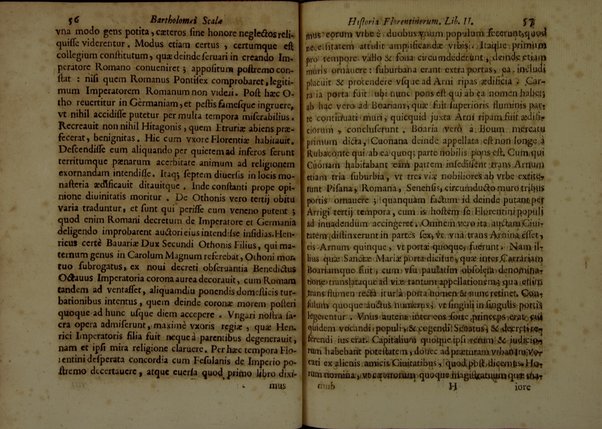 56 Bartholomei Scalæ
vna modo gens potita, cæteros sine honore neglectos reli-
quisse viderentur, Modus etiam certus, certumque est
collegium constitutum, quæ deinde seruari in creando Im-
peratore Romano consueuere; appositum postremo con-
stat: nisi quem Romanus Pontifex comprobaret, legiti-
mum Imperatorem Romanum non videri. Post hæc O-
tho reuertitur in Germaniam, et pestis famesque ingruere,
vt nihil accidisse putetur per multa tempora miserabilius.
Recreauit non nihil Hitagonis, quem Etruriæ abiens præ-
fecerat, benignitas. Hic cum vxore Florentiæ habitauit.
Descendisse eum aliquando per quietem ad inferos ferunt
territumque pænarum acerbitate animum ad religionem
exornandam intendisse. Itaq; septem diuersis in locis mo-
nasteria ædificauit ditauitque. Inde constanti prope opi-
nione diuinitatis moritur. De Othonis vero tertij obitu
varia traduntur, et sunt qui perisse eum veneno putent;
quod enim Romani decretum de Imperatore et Germania
deligendo improbarent auctori eius intendisse insidias. Hen-
ricus certè Bauariæ Dux Secundi Othonis Filius, qui ma-
ternum genus in Carolum Magnum referebat, Othoni mor-
tuo subrogatus, ex noui decreti obseruantia Benedictus
Octauus Imperatoria corona aurea decorauit, cum Romam
tandem ad ventasset, aliquamdiu ponendis domesticis tur-
bationibus intentus, quem deinde coronæ morem posteri
quoque ad hunc usque diem accepere. Vngari nostra sa-
cra opera admiserunt, maximè vxoris regiæ, quæ Hen-
rici Imperatoris filia fuit neque à parentibus degenerauit,
nam et ipsi mira religione claruere. Per hæc tempora Flo-
rentini desperata concordia cum Fesulanis de Imperio po-
stremo decertauere, atque euersa quod primo libro dixi-
mus
Historiæ Florentinorum. Lib. II. 57
mus eorum vrbe è duobus vnum populum fecerunt, quod
intellexerunt attidit amplificandis vtibi. Itaque primum
pro tempore vallo & fossa circumdederunt, deinde etiam
muris ornauere: suburbana erant extra portas, ea, includi
placuit & procendere vsque ad Arni ripas ædificia: Car-
ia porta sit vbi nunc pons est qui ab ea nomen habet,
ab hac vero ad Boariam, quæ fuit superioris fluminis par-
te constituati muri, quicquid juxta Arni ripam fuit ædifi-
ciorum, concluserunt. Boaria verò à Boum mercatu
primum dicta, Cuonana deinde appellata est non longe à
Rubaconte qui ab ea quoq; parte nobilis pons est. Cum qui
Coriam habitabant eam partem insedissent trans Arnum
etiam tria suburbia, vt tres viæ nobiliores ab vrbe exitu-
runt Pisana, Romana, Senensis, circumducto muro tribus
portis ornauere; quanquam factum id deinde putant per
Arrigi tertij tempora, cum is hostem se Florentini populi
ad inuadendum accingeret. Omnem vero ita auctam Ciui-
tatem distinxerunt in partes sex, vt vna trans Arnum esset,
cis Arnum quinque, vt portæ quoque, fuerunt. Nam il-
libus quæ Sanctæ Mariæ porta dicitur, quæ inter Carrariam
Boariamque fuit; cum vsu paulatim obsoleta denomina-
tione translatoque ad viæ rantum appellationem
trans flumen recta itur la porta nomen & nunc retinet. Con-
sulum quoque auctus numerus; vt singuli in singulis portis
legantur. Vnus autem intereos fors, princeps erat, cui
quidem vocandi populi, & cogendi Senatus, & decreti re-
ferendi ius erat. Capitalium quoque ipsi rerum & judicio-
rum habebant potestatem, donec ad prætorum vrbanum,
cti ex alienis amicis Ciuitatibus, quod post dicemus. Ho-
rum nomina, vocatorum quoque magistratuum quia
umb H iore